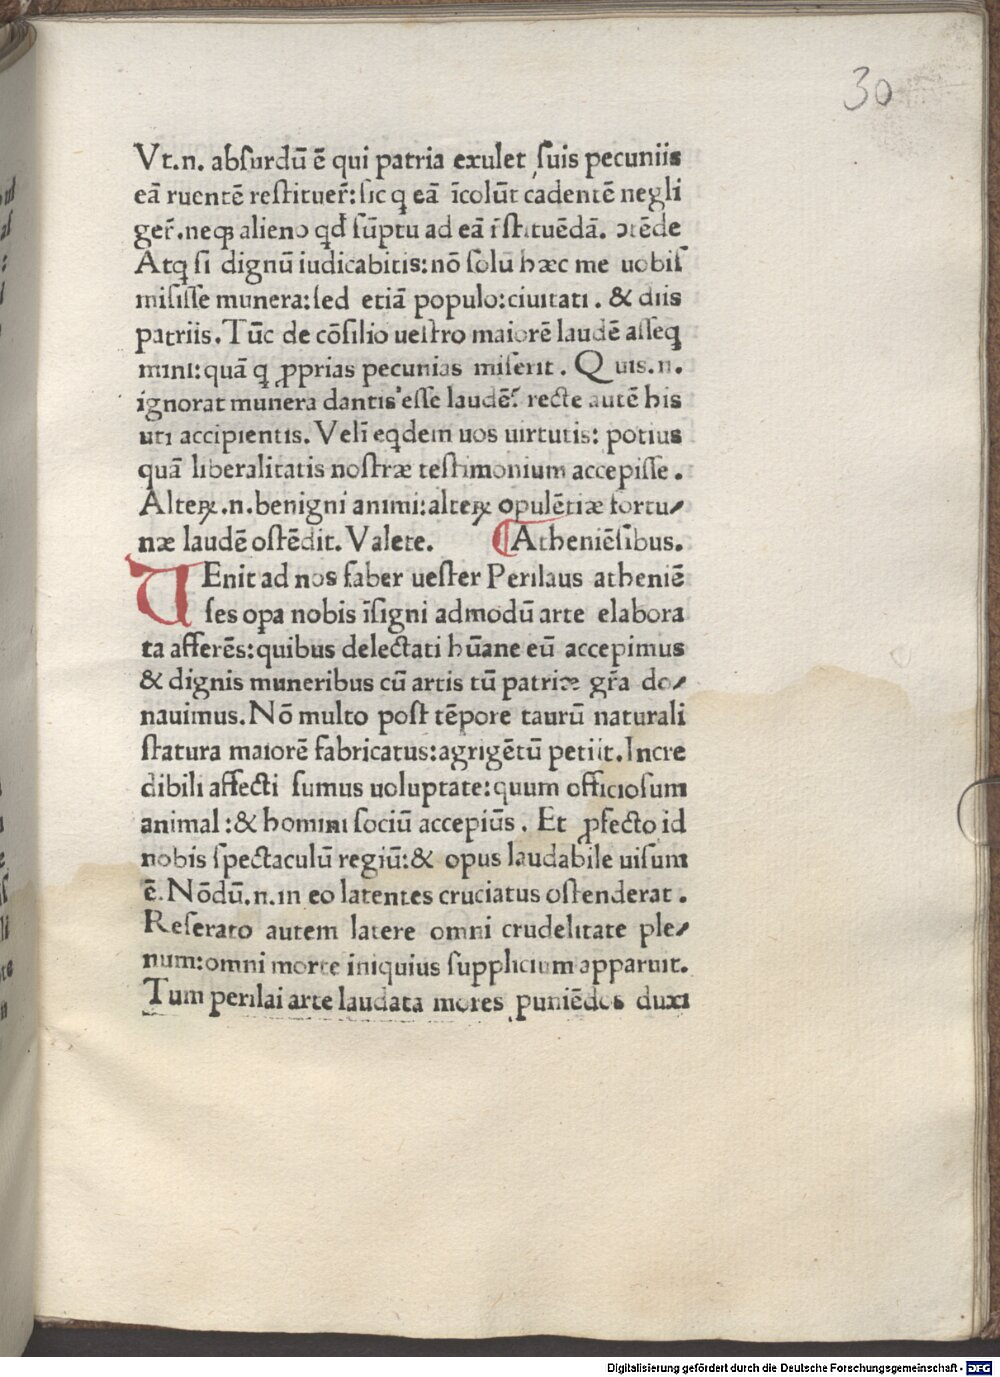 30
Vt.n. absurdū ē qui patria exulet suis pecuniis
eā ruentē restituer̄: sic q̨ eā īcolūt cadentē negli
ger̄. neqꝫ alieno qđ sūptu ad eā r̄stituēdā. ↄtēde
Atqꝫ si dignū iudicabitis: nō solū hæc me uobis
misisse munera: sed etiā populo: ciuitati. & diis
patriis. Tūc de cōsilio uestro maiorē laudē asseq̨
mini: quā q̨ ꝓprias pecunias miserit. Quis.n.
ignorat munera dantis esse laudē: recte autē his
uti accipientis. Velī eqdem uos uirtutis: potius
quā liberalitatis nostræ testimonium accepisse.
Alteꝝ.n. benigni animi: alteꝝ opulētiæ fortu-
næ laudē ostēdit. Valete. ¶ Atheniēsibus.
VEnit ad nos faber uester Perilaus atheniē
ses opa nobis īsigni admodū arte elabora
ta afferēs: quibus delectati hūane eū accepimus
& dignis muneribus cū artis tū patriæ gr̄a do-
nauimus. Nō multo post tēpore taurū naturali
statura maiorē fabricatus: agrigētū petiit. Incre
dibili affecti sumus uoluptate: quum officiosum
animal: & homini sociū accepiūs. Et ꝓfecto id
nobis spectaculū regiū: & opus laudabile uisum
ē. Nōdū.n. in eo latentes cruciatus ostenderat.
Reserato autem latere omni crudelitate ple-
num: omni morte iniquius supplicium apparuit.
Tum perilai arte laudata mores puniēdos duxi
Digitalisierung gefördert durch die Deutsche Forschungsgemeinschaft - DFG